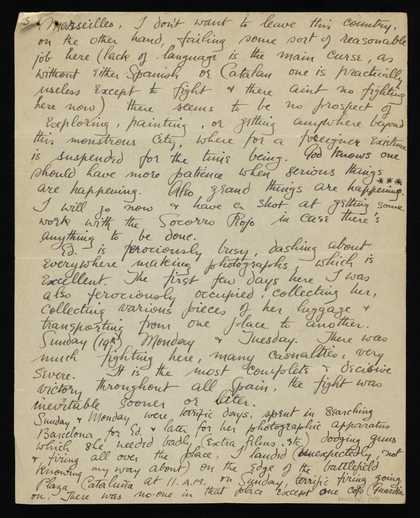 Marseilles. I don't want to leave this country.
on the other hand, failing some sort of reasonable
job here (lack of language is the main curse, as
without either Spanish or Catalan one is practically
useless except to fight & there aint no fighting
here now) there seems to be no prospect of
exploring, painting, or getting anywhere beyond
this monstrous city, where for a foreigner existence
is suspended for the time being. God knows one
should have more patience when serious things
are happening. Also grand things are happening.
I will go now & have a shot at getting some
work with the Socorro Rojo in case there's
anything to be done.
Ed. is ferociously busy, dashing about
everywhere making photographs, which is
excellent. The first few days here I was
also ferociously occupied, collecting her,
collecting various pieces of her luggage &
transporting from one place to another.
Sunday (19th) Monday & Tuesday. There was
much fighting here, many casualties, very
severe. It is the most complete & decisive
victory throughout all Spain, the fight was
inevitable sooner or later.
Sunday & Monday were terrific days, spent in searching
Barcelona for Ed & later for her photographic apparatus
which she needed badly (extra films, etc) dodging guns
& firing all over the place. I landed (unexpectedly, not
knowing my way about) on the edge of the battlefield
Plaza Cataluña at 11. A.M. on Sunday, terrific firing going
on. There was no-one in that place except one